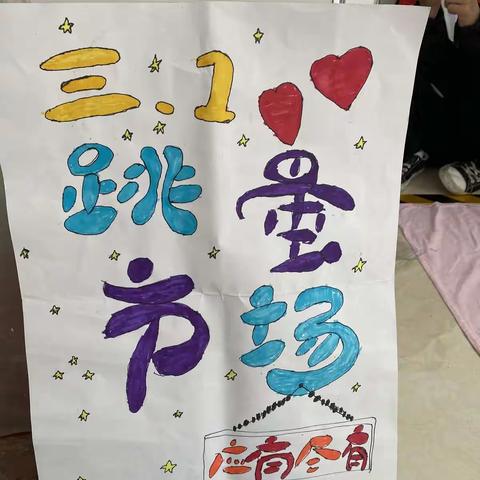 三.1
跳量
市场
应有尽有